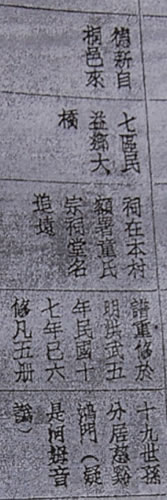 舊新自
桐邑來
七區民
益鄉大
橫
祠在本村
額署童氏
宗祠堂名
追遠
譜重修於
明洪武五
年民國十
七年已六
修凡五册
十九世發
分居慈谿
鴻門（疑
是河姆音
譌）